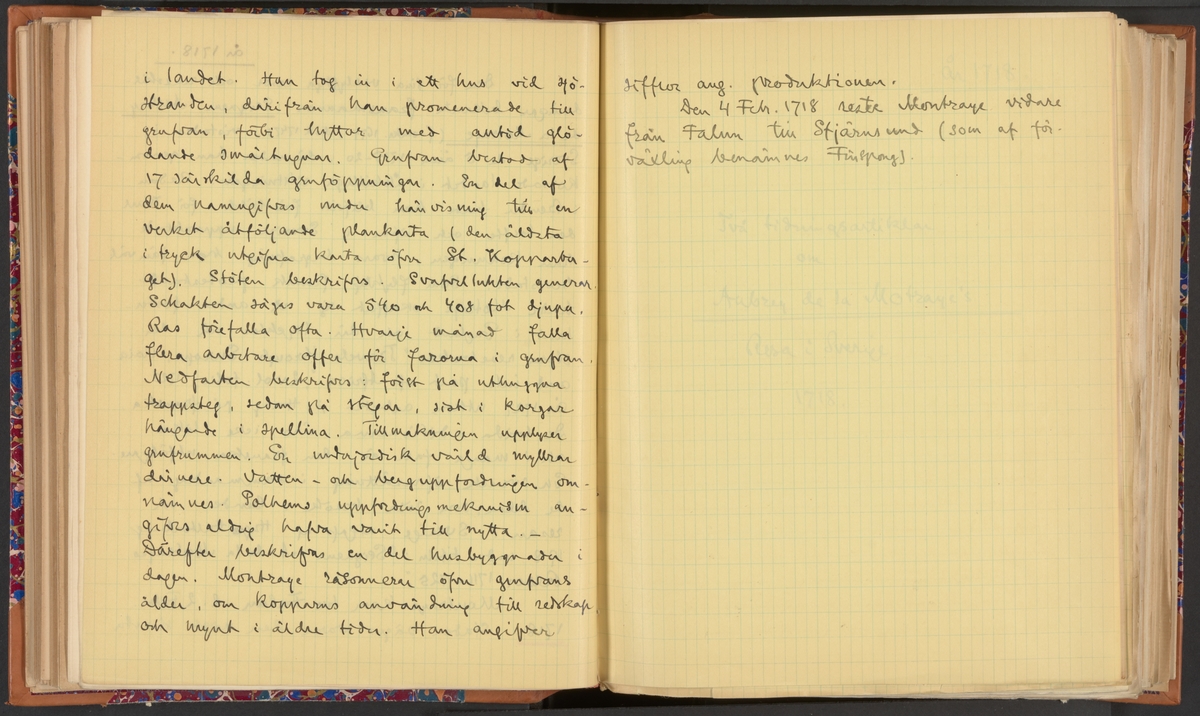 i landet. Han tog in i ett hus vid sjö-
stranden, därifrån han promenerade till
grufvan, förbi hyttor med antid glö-
dande smältugnar. Grufvan bestod af
17 särskilda gruföppningar. En del af
dem namngifvas under hänvisning till en
verket åtföljande plankarta (den äldsta
i tryck utgifna karta öfver St. Kopparber-
get). Stöten beskrifves. Svafvellukten generar.
Schakten säges vara 540 och 408 fot djupa.
Ras förefalla ofta. Hvarje månad falla
flera arbetare offer för farorna i grufvan.
Nedfarten beskrifves: först på uthuggna
trappsteg, sedan på stegar, sist i korgar
hängande i spellina. Tillmakningen upplyser
grufrummen. En underjordisk värld myllrar
därnere. Vatten- och berguppfordringen om-
nämnes. Polhems uppfordringsmekanism an-
gifves aldrig hafva varit till nytta. –
Därefter beskrifvas en del husbyggnader i
dagen. Montraye räsonnerar öfver grufvans
ålder, om kopparns användning till redskap
och mynt i äldre tider. Han angifver
siffror ang. produktionen.
Den 4 Febr. 1718 reste Montraye vidare
från Falun till Stjärnsund (som af för-
växling benämnes Finspong).